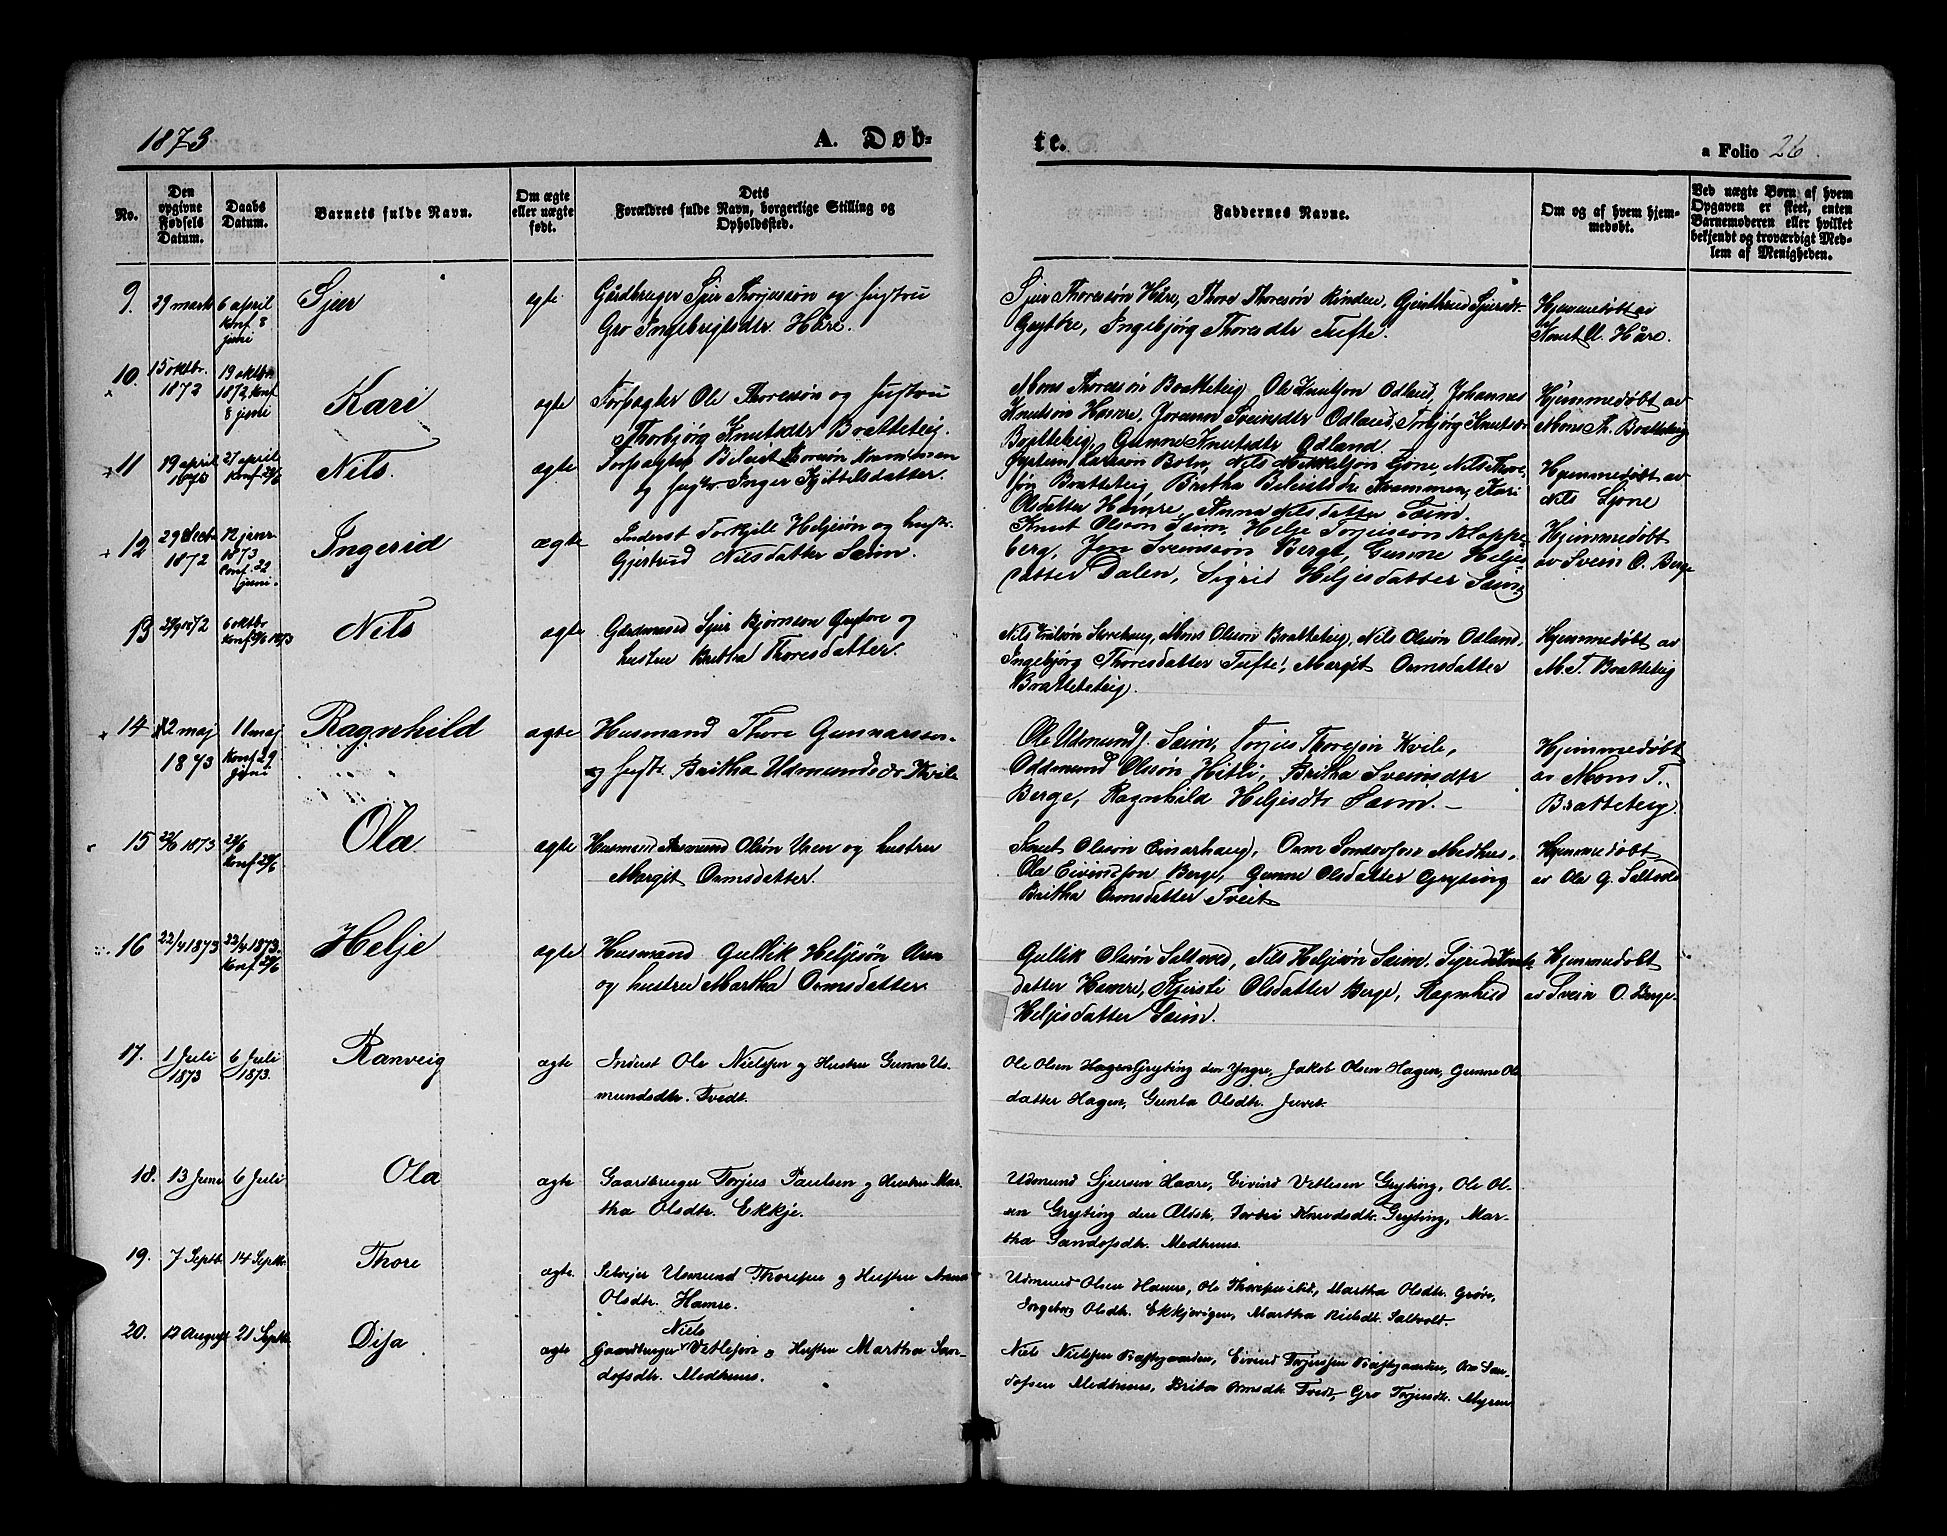 1873
A. Døb-
te.
a Folio 26.
No.
Den opgivne Fødsels Datum.
Daabs Datum.
Barnets fulde Navn.
Om ægte eller uægte født.
Dets Forældres fulde Navn, borgerlige Stilling og Opholdssted.
Faddernes Navne.
Om og af hvem hjem-
medøbt.
Ved uægte Børn af hvem
Opgaven er skeet, enten
Barnemoderen eller hvilket
bekjendt og troværdigt Med-
lem af Menigheden.
9. 29 marts 6 april Konf. 8 juni
Sjur
ægte
Gårdbruger Sjur Thoresøn og hustru
Gro Ingebrigtsdtr Håre.
Sjur Thoresøn Håre, Thore Thoresøn Rinden, Gjerthrud Sjursdtr
Grytøre, Ingebjørg Thoresdtr Tufte.
Hjemmedøbt av
Knut U. Håre.
10. 15 oktbr. 1872 19 oktbr 1872 Konf 8 juni
Kari
ægte
Forpagter Ole Thoresøn og hustru
Thorbjørg Knutsdtr Bratteteig.
Mons Thoresøn Bratteteig, Ole Knutsøn Odland, Johannes
Knutsøn Hamre, Joranna Sveinsdtr Odland, Torbjørg Knutsdtr
Bratteteig, Gunne Knutsdtr Odland.
Hjemmedøbt av
Mons Th. Bratteteig
11 19 april 1873 27 april Konf 29/6
Nils.
ægte
Forpagter Bleist Toresøn Krammen
og hustr. Inger Kjittelsdatter.
Larsson Botn, Nils Mikkeljon Ljone, Nils Thore-
søn Bratteteig Britha Bleistsdr. Krammen, Kari
Olsdatter Hamre, Anna Nilsdatter Seim
Hjemmedøbt av
Nils Ljone
12 29 Decbr 1872 12 januar 1873 Konf. 22 juni.
Ingerid
ægte
Inderst Torkjill Heljesøn og hustr.
Gjertrud Nilsdatter Seim.
Knut Olson Seim, Helje Torjussøn Kloppe-
berg, Jon Sveinsøn Berge, Gunne Heljes
datter Dalen, Sigrid Heljesdatter Seim
Hjemmedøbt
av Svein O. Berge
13 29/9 1872 6 oktbr Konf 29/6 1873
Nils
ægte
Gårdmand Sjur Bjørnson Grytøre og
hustru Britha Thoresdatter.
Nils Mons Olson Bratteteig, Nils Olsøn Odland,
Ingebjørg Thoresdatter Tufte, Margit Ormsdatter
Bratteteig.
Hjemmedøbt av
M. T. Bratteteig
14 2 maj 1873 11 maj Konf 29 juni
Ragnhild
ægte
Husmand Thore Gunnarson
og hustr. Britha Udmundsdr Kvile
Ole Udmunds. Seim, Torjus Thoresøn Kvile,
Oddmund Olsøn Hitli, Britha Sveinsdtr
Berge, Ragnhild Heljesdtr Seim. —
Hjemmedøbt
av Mons T.
Bratteteig.
15 22/6 1873 28/6 Konf 29/6
Ola
ægte
Husmand Asmund Olsøn Uren og hustru
Margit Ormsdatter.
Knut Olsøn Einarhaug, Orm Sondresøn Medhus,
Ola Eivindson Berge, Gunne Olsdatter Gryting
Britha Ormsdatter Tveit
Hjemmedøbt
av Ola G. Saltvold
16 22/4 1873 22/4 1873. Konf 29/6
Helje
ægte
Husmand Gullik Heljesøn Uren
og hustru Martha Ormsdatter.
Gullik Olsøn Saltvold, Nils Heljesøn Seim, Sigrid Knuts-
datter Hamre, Kjersti Olsdatter Berge, Ragnhild
Heljesdatter Seim.
Hjemmedøbt
av Svein O. Berge.
17. 1 Juli 1873 6 Juli 1873.
Ranveig
ægte
Inderst Ole Nielsen og Hustru Gunne Us-
mundsdtr. Tvedt.
Ole Olsen Hagen Gryting den Yngre, Jakob Olsen Hagen, Gunne Ols
datter Hagen, Gunta Olsdtr. Juvet.
18. 13 Juni 6 Juli
Ola
ægte
Gaardbruger Torjus Paulsen og Hustru Mar-
tha Olsdtr. Ekkje.
Udmund Sjursen Haare, Eivind Vetlesen Gryting, Ole Ol-
sen Gryting den Eldste, Torbri Knudsdtr. Gryting, Mar-
tha Sandofsdtr. Medhuus.
19. 7 Septb. 14 Septbr.
Thore
ægte
Selvejer Usmund Thoresen og Hustru Anna
Olsdtr. Hamre.
Udmund Olsen Hamre, Ole Thoresen ibid, Martha Olsdtr. Grøn,
Ingeborg Olsdtr. Ekkjeveigen, Martha Nielsdtr. Saltvolt.
20. 12 August 21 Septbr
Disa
ægte
Niels
Gaardbruger Vetlesen og Hustru Martha San-
dofsdtr. Medhuus.
Niels Nielsen Prestgaarden, Eivind Torjussen Prestgaarden, Orm San-
dofsen Medhuus, Brita Ormsdtr Tvedt, Gro Torjusdtr. Myren